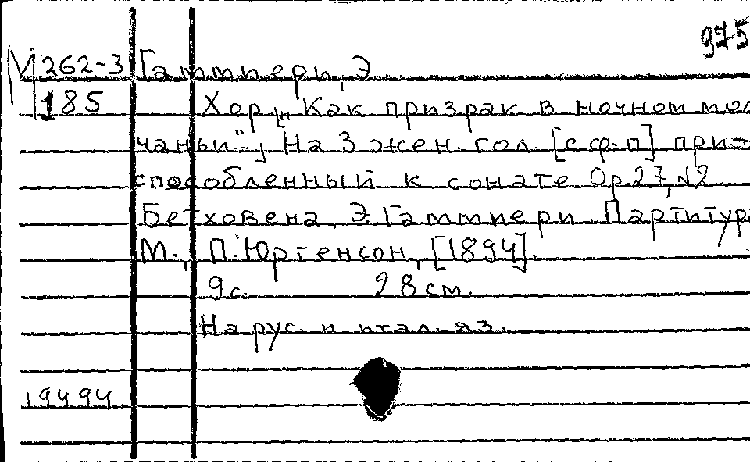 975
М 262-3 Гаттиери, Э
185 Хор „Как призрак в ночном мол
чаньи", На 3 жен. гол. [с ф.п] при-
способленный к сонате Op.27, №2
Бетховена Э. Гаттиери. Партитура
М., П. Юргенсон, [1894].
9 с. 28 см.
На рус. и итал. яз.
19494